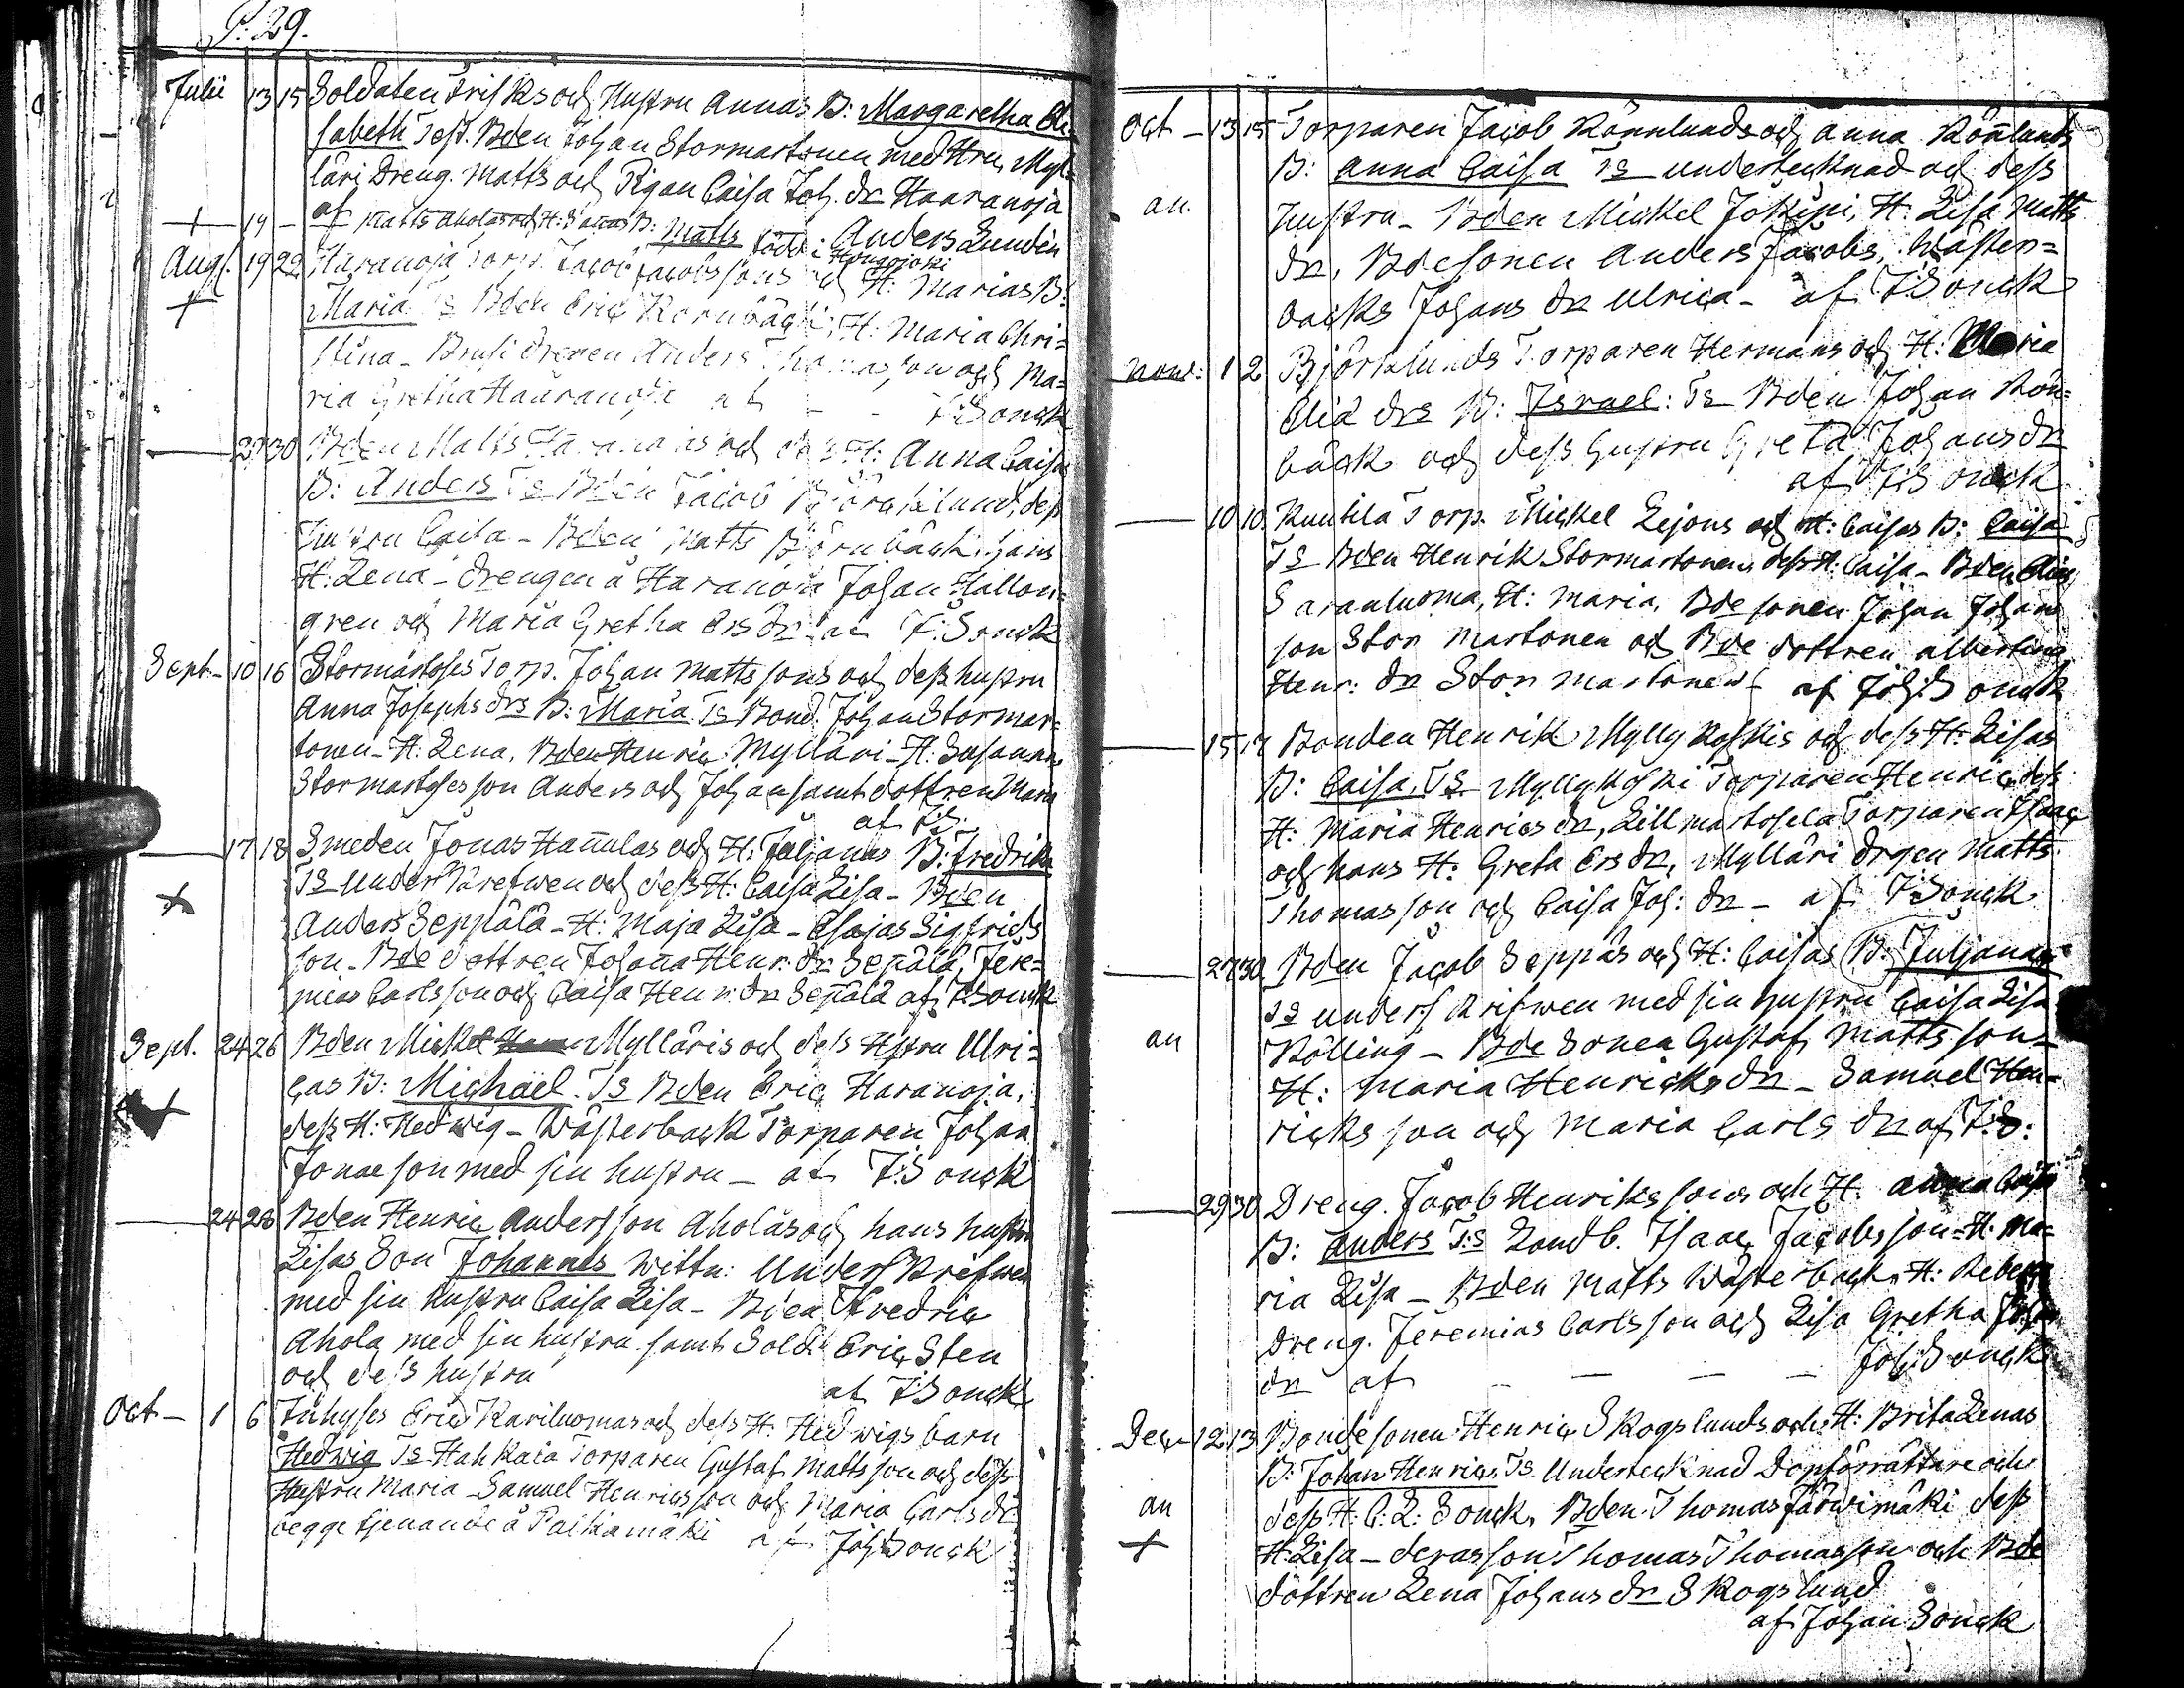 P. 29.
Julii 13 15 Soldaten Frisks och Hustru Annas B: Margaretha Eli-
sabeth Test. Bden Johan Stormartonen med Hru, Myl-
läri Dreng. Matts och Pigan Caisa Joh. Dr Haaranoja
af Anders Lundén
+ 19 – Matts Aholas och H: B: Matts död:
Aug. 19 22 Haranoja Torp. Jacob Jacobssons och H: Marias B:
+ Maria Ts Bden Eric Kornbäck, H: Maria Chri=
stina – Anders Thomasson och Ma=
ria Gretha Haaranoja af – – J: Sonck
— 29 30 Bden Matts och H: Anna Caisas
B: Anders Ts Bden Jacob Björcklund, dess
Hustru Caisa – Bden Matts Björnbäck, hans
H: Lena – Drengen å Haranoja Johan Hallon=
gren och Maria Gretha Ers Dr af J: Sonck
Sept. – 10 16 Stormartoses Torp. Johan Mattssons och dess hustru
Anna Josephs drs B: Maria Ts Bond. Johan Stormar=
tonen – H: Lena, Bden Henric Mylläri – H: Susanna,
Stormartoses son Anders och Johan samt dottren Maria
af J:S.
— 17 18 Smeden Jonas Hannulas och H: Juljanas B: Fredrika
Ts Underskrefwen och dess H: Caisa Lisa – Bden
+ Anders Seppälä – H: Maja Lisa – Esajas Sigfrids
son – Bde dottren Johanna Henr. Dr Sepälä, Jere=
mias Carlsson och Caisa Henr. Dr Sepälä af J: Sonck
Sept. 24 26 Bden Mickel Mylläris och dess Hstru Ulri=
cas B: Michael. Ts Bden Eric Haranoja,
+ dess H: Hedwig – Wästerback Torparen Johan
Jonae son med sin hustru – af J: Sonck
— 24 28 Bden Henric Andersson Aholas och hans hustru
Lisas Son Johannes Wittn: Underskrifwen
med sin hustru Caisa Lisa – Bden Fredric
Ahola med sin hustru samt Sold. Eric Sten
och dess hustru af J: Sonck
Oct – 1 6 Inhyses Eric Kariluomas och dess H: Hedwigs barn
Hedwig Ts Hahkala Torparen Gustaf Mattsson och dess
Hustru Maria – Samuel Henricsson och Maria Carls dr
begge tjenande å Palhamäki af Joh: Sonck
Oct – 13 15 Torparen Jacob Rönnlunds och Anna Rönnlunds
B: Anna Caisa Ts undertecknad och dess
an. Hustru – Bden Mickel Jokipi, H. Lisa Matts
dr, Bdesonen Anders Jacobs, Wästen=
backs Johans dr Ulrica – af J: Sonck
Nov: 1 2 Björklunds Torparen Hermans och H: Maria
Eliæ drs B: Israel: Ts Bden Johan Rön=
bäck och dess hustru Greta Johans dr
af J:Sonck
— 10 10 Kuntila Torp. Mickel Lejons och H: Caisas B: Caisa
Ts Bden Henrik Stormartonen, dess H: Caisa – Bden Elias
Saranluoma, H: Maria, Bde sonen Johan Johans
son Stor Martonen och Bde dottren Albertina
Henr: dr Stor Martonen af Joh: Sonck
— 15 17 Bonden Henrik Myllykoskis och dess H: Lisas
B: Caisa, Ts Myllykoski Torparen Henric, dess
H: Maria Henrics dr, Lillmartosela Torparen Isaac
och hans H: Greta Ers dr, Mylläri drgen Matts
Thomasson och Caisa Joh: dr – af J:Sonck
— 27 30 Bden Jacob Seppäs och H: Caisas B: Juljana
Ts underskrifwen med sin hustru Caisa Lisa
an Kölling – Bde Sonen Gustaf Mattsson –
H: Maria Henricks dr – Samuel Hen-
ricks son och Maria Carls dr af J:S:
— 29 30 Dreng. Jacob Henrikssons och H. Anna Caisas
B: Anders T:s Landb. Isaac Jacobsson – H: Ma=
ria Lisa – Bden Matts Wästerback, H: Rebecca
Dreng. Jeremias Carlsson och Lisa Gretha Johans
dr af – – – Joh: Sonck
Dec – 12 13 Bondesonen Henric Skogslunds och H: Brita Lenas
B: Johan Henric, Ts Undertecknad Dopförrättare och
an dess H: C: L: Sonck, Bden Thomas Järwimäki dess
+ H: Lisa – deras son Thomas Thomasson och Bde
dottren Lena Johans dr Skogslund
af Johan Sonck